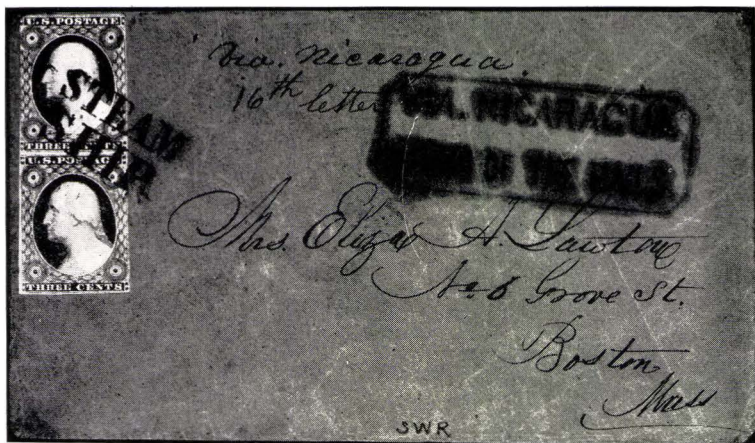 U.S. POSTAGE
THREE CENTS
U.S. POSTAGE
THREE CENTS
STEAM
SHIP
Via. Nicaragua.
16th letter
VIA. NICARAGUA
AHEAD OF THE MAILS
Mrs. Eliza A. Lawton
No 6 Grove St.
Boston
Mass
SWR